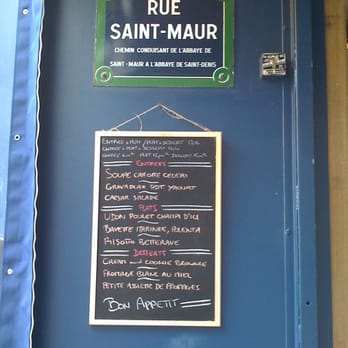 RUE
SAINT-MAUR
CHEMIN CONDUISANT DE L'ABBAYE DE
SAINT-MAUR A L'ABBAYE DE SAINT-DENIS
ENTREE + PLAT / PLAT + DESSERT
ENTREE + PLAT + DESSERT
ENTREE PLAT DESSERT
ENTREES
SOUPE CAROTTE CELERI
GRAVADLAX YAOURT
CAESAR SALADE
PLATS
UDON POULET CHAMPI D'ICI
BAVETTE MARINEE, POLENTA
RISOTTO BETTERAVE
DESSERTS
CREAM AND COOKIE BROWNIE
FROMAGE BLANC AU MIEL
PETITE ASSIETTE DE FROMAGES
BON APPETIT